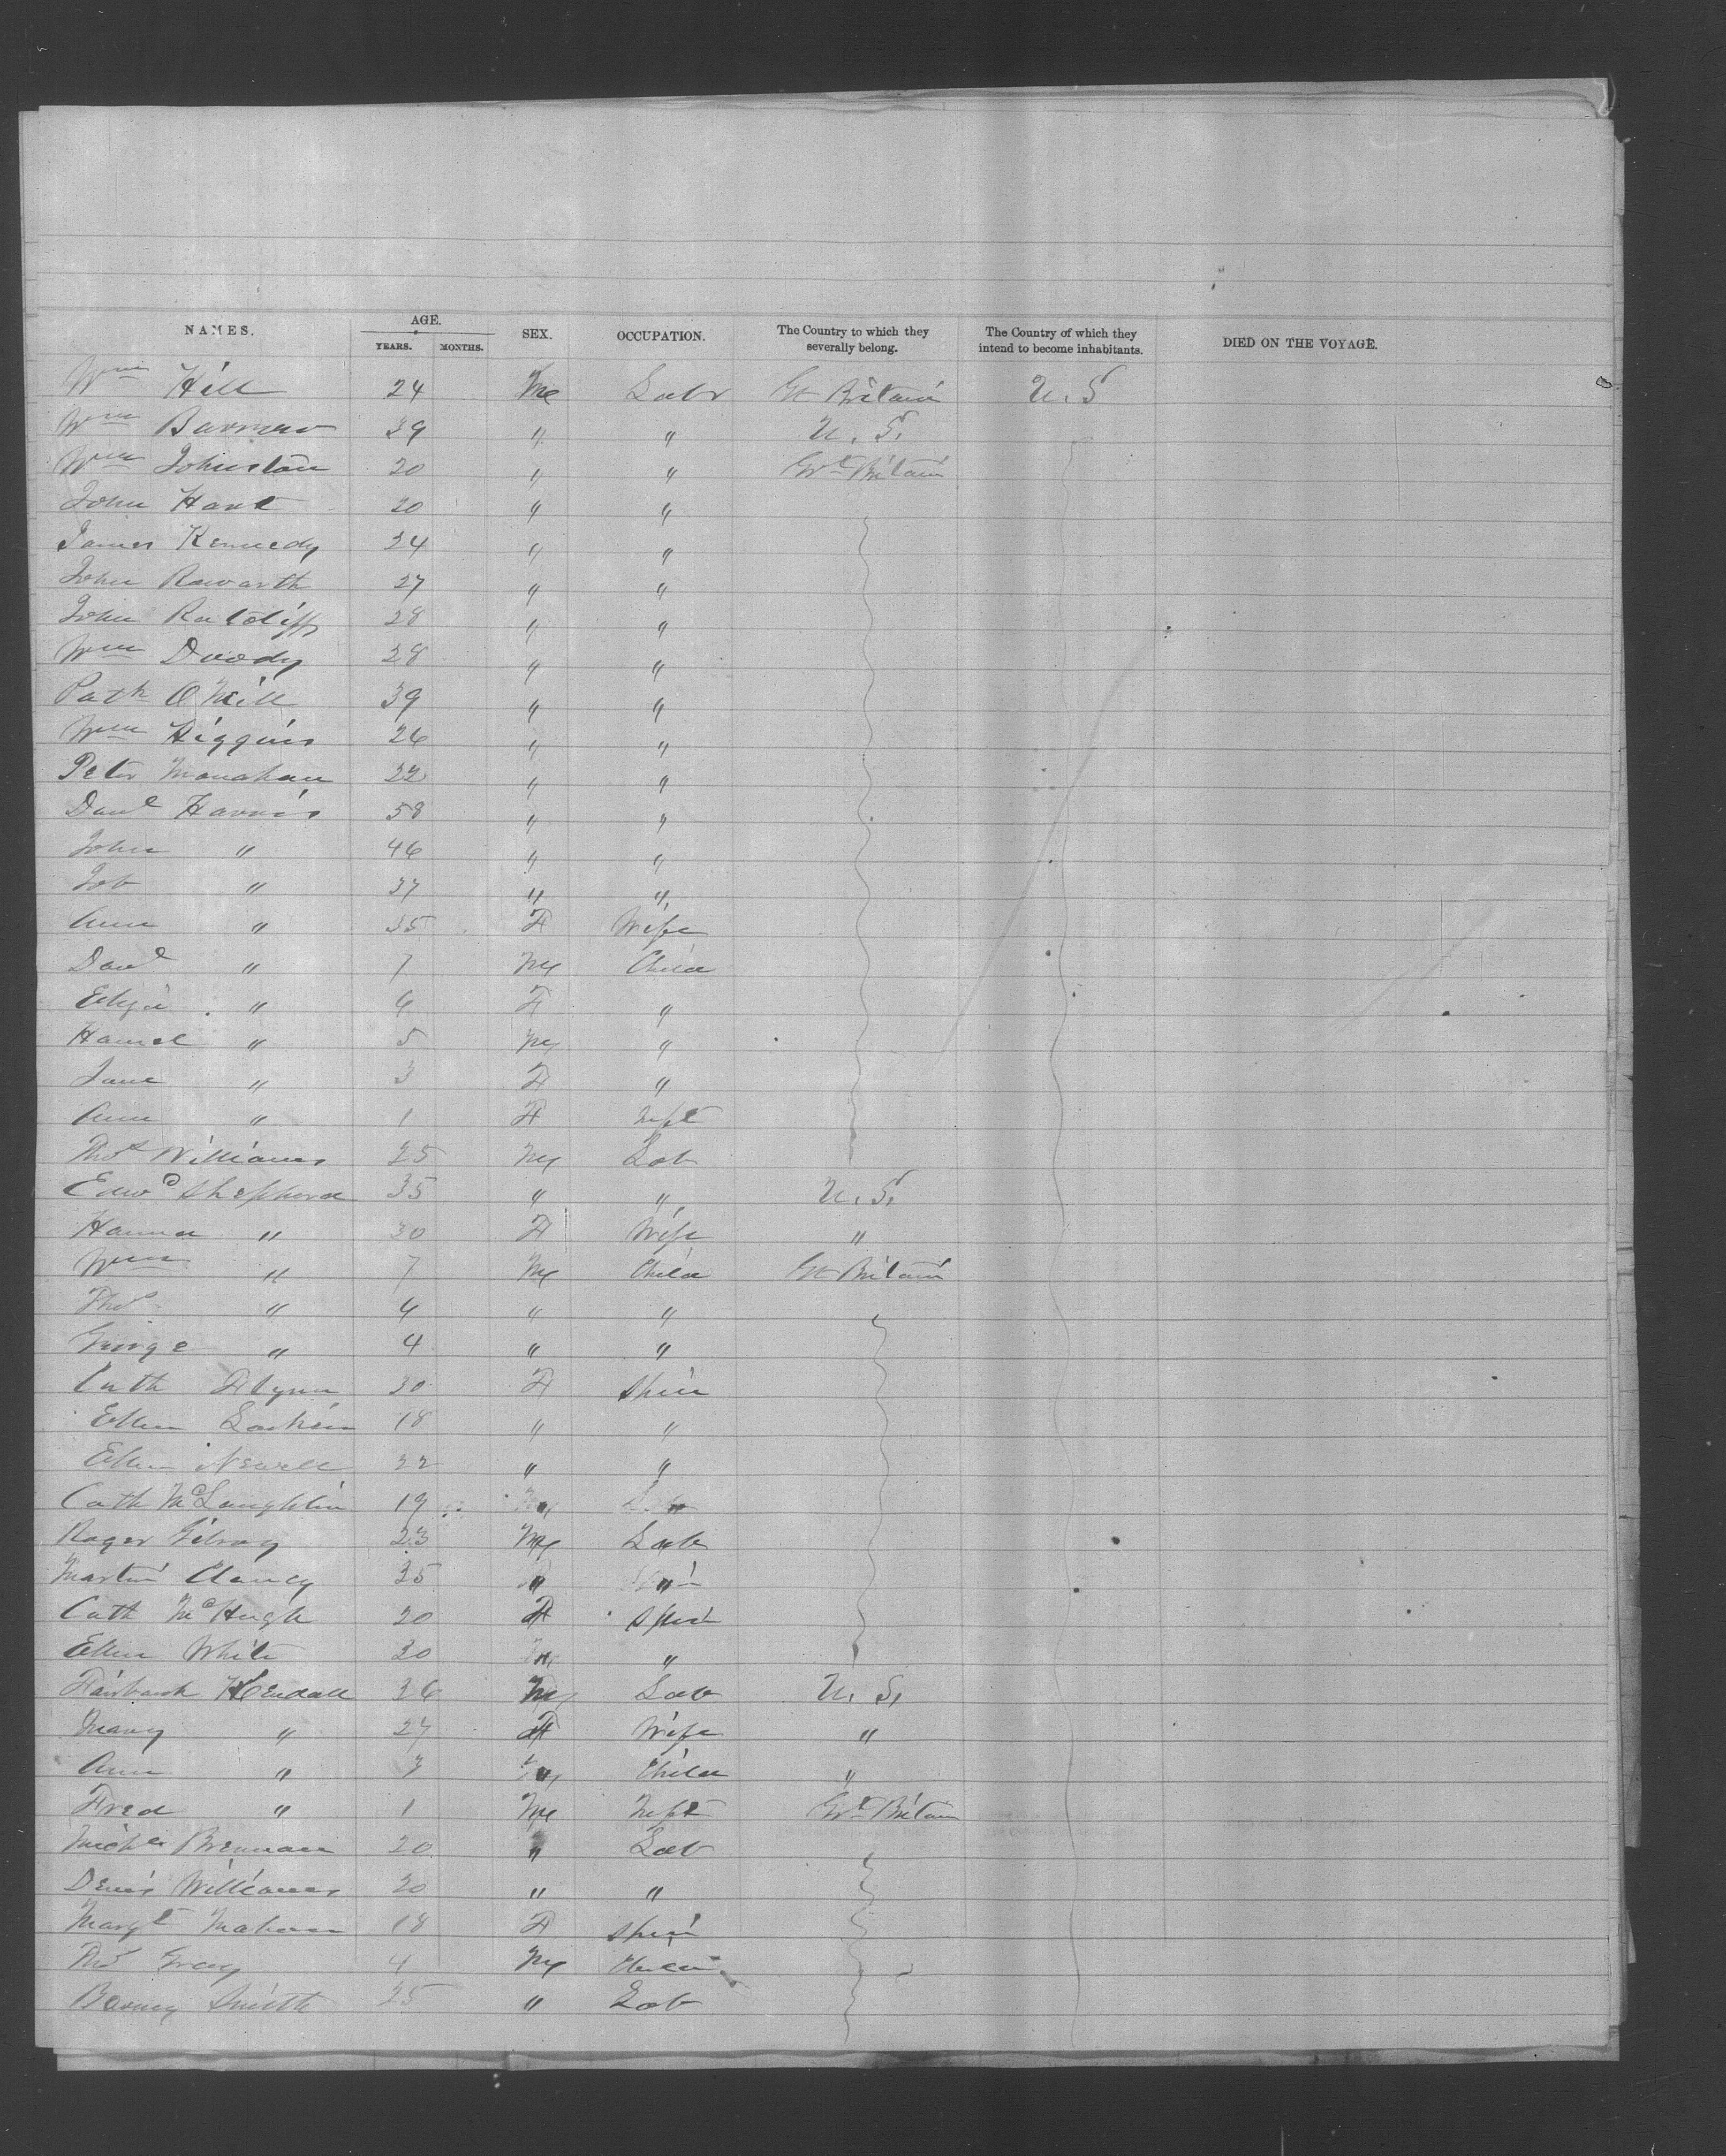 NAMES. AGE. SEX. OCCUPATION. The Country to which they severally belong. The Country of which they intend to become inhabitants. DIED ON THE VOYAGE.
YEARS. MONTHS.
Wm Hill 24 M Labr Gt Britain U.S
Wm 39 " " U.S.
Wm Johnston 20 " " Grt Britain
John Hart 20 " "
James Kennedy 24 " "
John Raworth 27 " "
John Ratcliff 28 " "
Wm Doody 28 " "
Patk O'Neill 39 " "
Wm Higgins 26 " "
Peter Monahan 22 " "
Danl Harris 58 " "
John " 46 " "
Job " 37 " "
Ann " 35 F Wife
Danl " 7 M Child
Eliza " 6 F "
Hamel " 5 M "
Jane " 3 F "
Ann " 1 F Inft
Thos Williams 25 M Lab
Edwd Shepherd 35 " " U.S.
Hanna " 30 F Wife "
Wm " 7 M Child Gt Britain
Thos " 6 " "
George " 4 " "
Cath Flynn 30 F Spin
Ellen 18 " "
Ellen Newell 22 " "
Cath McLaughlin 19 " "
Roger Gilroy 23 M Lab
Martin Clancy 35 " "
Cath McHugh 20 F Spin
Ellen White 30 " "
Fairbank Kendall 36 M Lab U.S.
Mary " 27 F Wife "
Ann " 3 " Child "
Fred " 1 M Inft Grt Britain
Michl Brennan 20 " Lab
Denis Williams 20 " "
Margt Mahon 18 F Spin
Thos Gray 4 M
Barney Smith 25 " Lab